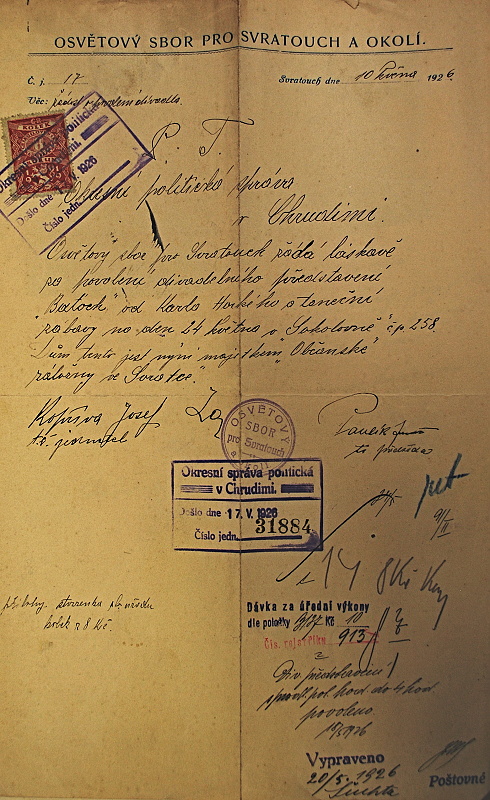 OSVĚTOVÝ SBOR PRO SVRATOUCH A OKOLÍ.
Č. j. 17
Svratouch dne 10 května 1926.
Věc: žádost o povolení divadla.
P. T.
Okresní politická správa
v Chrudimi.
Osvětový sbor pro Svratouch žádá laskavě
za povolení divadelního představení
"Batoch" od Karla Horkého a taneční
zábavy na den 24 května v Sokolovně čp 258
Dům tento jest nyní majetkem "Občanské
záložny ve Svratce".
Okresní správa politická
v Chrudimi.
Došlo dne V. 1926
Číslo jedn.
Kopřiva Josef
Za
t.č. jednatel
OSVĚTOVÝ
SBOR
pro Svratouch
a okolí
t.č. předseda
Okresní správa politická
v Chrudimi.
Došlo dne 17. V. 1926
Číslo jedn. 31884
14 8Kč
kolek 8 Kč
Dávka za úřední výkony
dle položky Kč 10
Čís. rejstříku 913
Div. představení
do 4 hod.
povoleno
Vypraveno
20/5. 1926
Poštovné